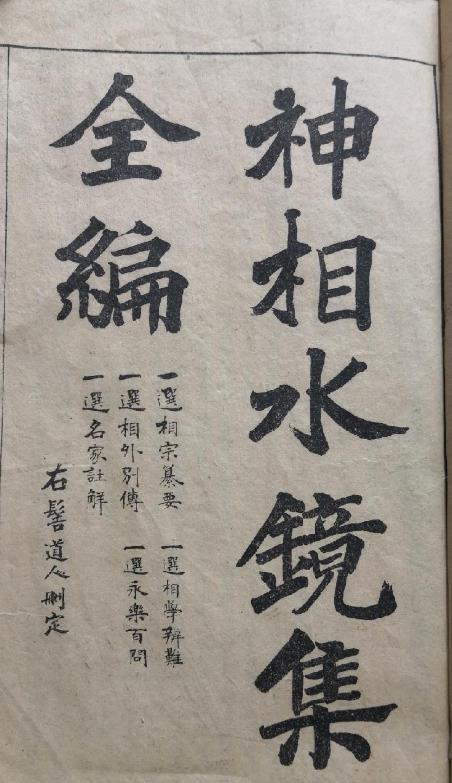 神相水鏡集
全編
一選相宗纂要
一選相學辨難
一選相外別傳
一選永樂百問
一選名家註解
右髻道人刪定